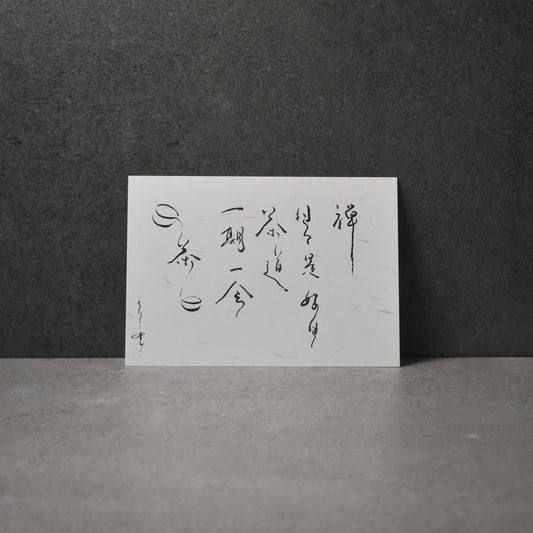 禅
日々是好日
茶道
一期一会
茶